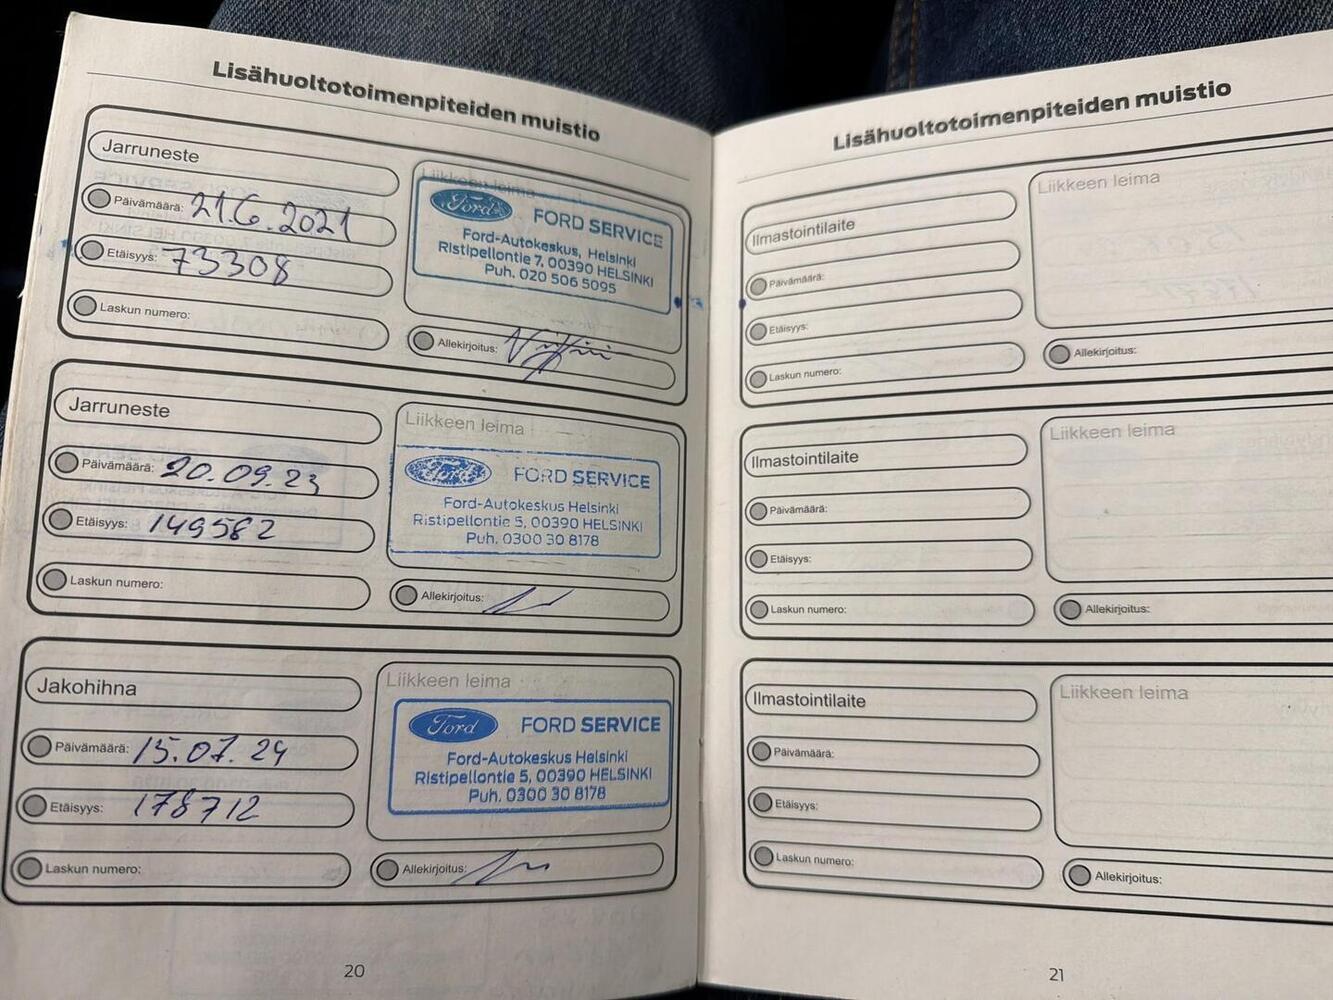 Lisähuoltotoimenpiteiden muistio
Jarruneste
Päivämäärä: 21.6.2021
Etäisyys: 73308
Laskun numero:
Liikkeen leima
Ford FORD SERVICE
Ford-Autokeskus, Helsinki
Ristipellontie 7, 00390 HELSINKI
Puh. 020 506 5095
Allekirjoitus:
Jarruneste
Päivämäärä: 20.09.23
Etäisyys: 149582
Laskun numero:
Liikkeen leima
Ford FORD SERVICE
Ford-Autokeskus Helsinki
Ristipellontie 5, 00390 HELSINKI
Puh. 0300 30 8178
Allekirjoitus:
Jakohihna
Päivämäärä: 15.07.24
Etäisyys: 178712
Laskun numero:
Liikkeen leima
Ford FORD SERVICE
Ford-Autokeskus Helsinki
Ristipellontie 5, 00390 HELSINKI
Puh. 0300 30 8178
Allekirjoitus:
20
Lisähuoltotoimenpiteiden muistio
Ilmastointilaite
Päivämäärä:
Etäisyys:
Laskun numero:
Liikkeen leima
Allekirjoitus:
Ilmastointilaite
Päivämäärä:
Etäisyys:
Laskun numero:
Liikkeen leima
Allekirjoitus:
Ilmastointilaite
Päivämäärä:
Etäisyys:
Laskun numero:
Liikkeen leima
Allekirjoitus:
21